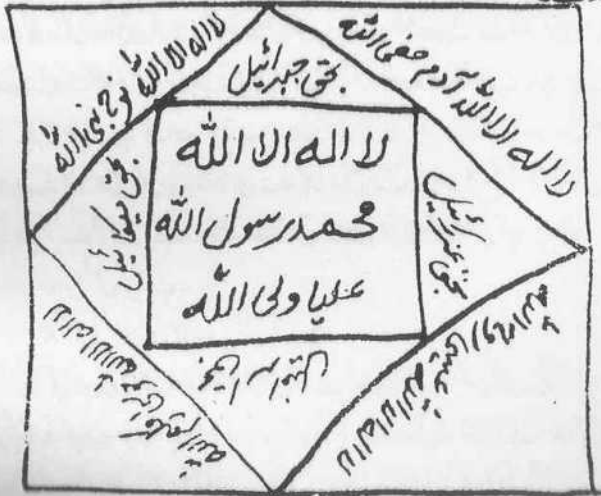 لا اله الا الله آدم صفی الله
لا اله الا الله نوح نبی الله
بحق جبرائیل
بحق عزرائیل
بحق میکائیل
بحق اسرافیل
لا اله الا الله
محمد رسول الله
علیا ولی الله
لا اله الا الله عیسی روح الله
لا اله الا الله موسی کلیم الله